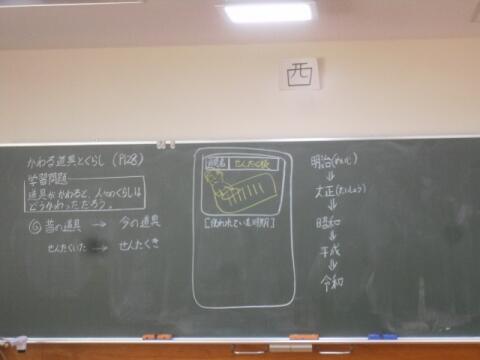 西
かわる道具とくらし (P128)
学習問題
道具がかわると、人々のくらしは
どうかわっただろう。
昔の道具 → 今の道具
せんたくいた → せんたくき
道具名 せんたく板
[使われていた時期]
明治(めいじ)
⇓
大正(たいしょう)
⇓
昭和
⇓
平成
⇓
令和